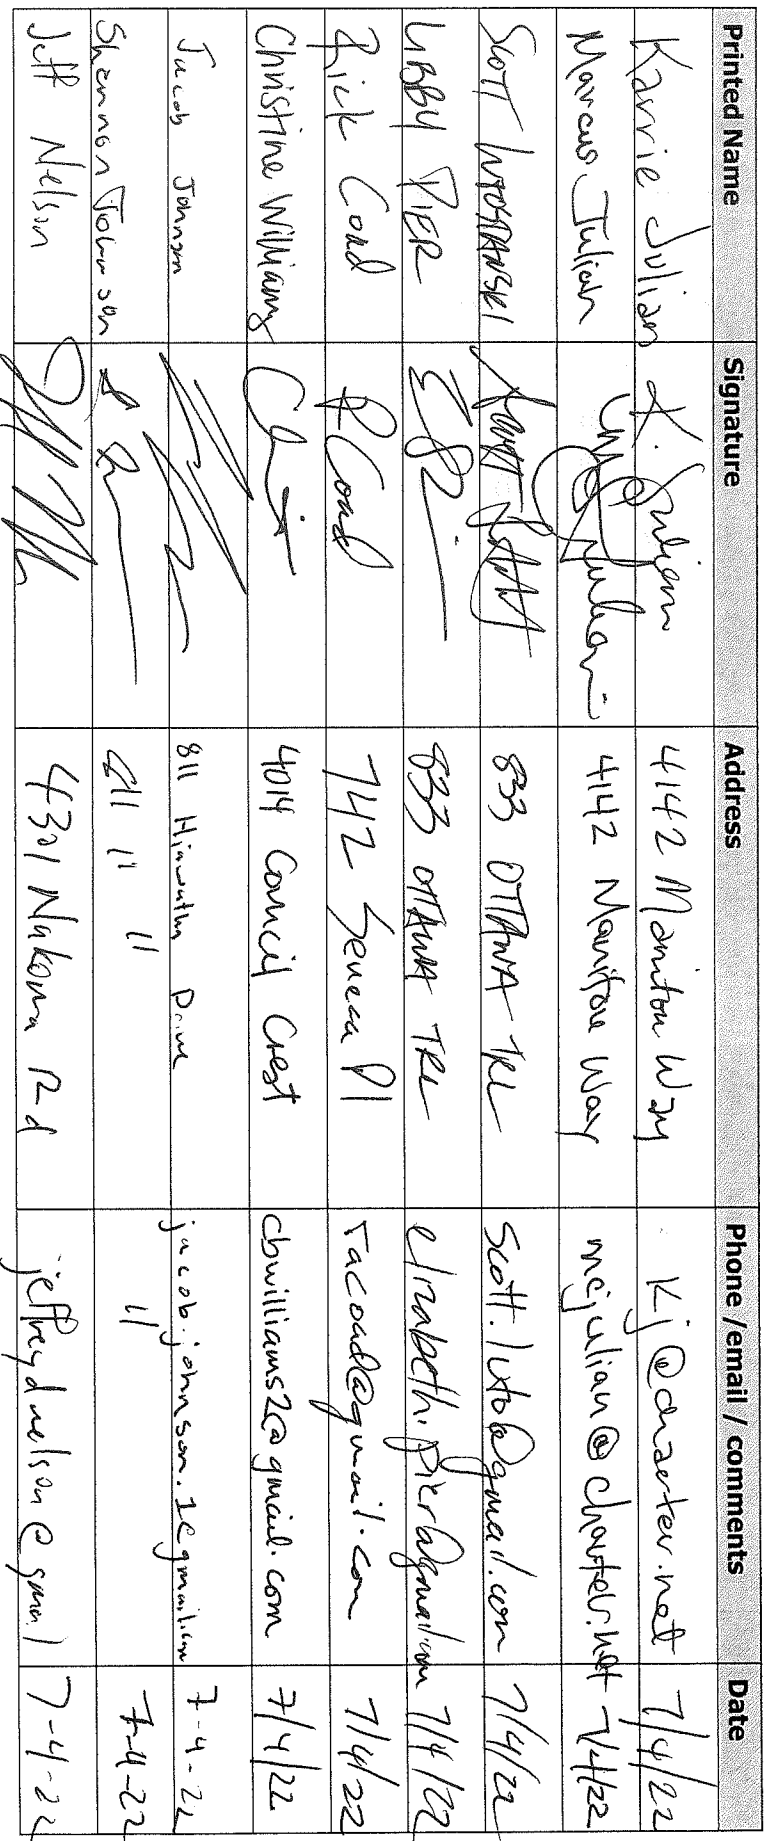 Printed Name Signature Address Phone /email / comments Date
Karrie Julian K. Julian 4142 Manitou Way Kj@charter.net 7/4/22
Marcus Julian 4142 Manitou Way mcjulian@charter.net 7/4/22
Scott 833 OTTAWA TRL Scott.luto@gmail.com 7/4/22
LIBBY PIER 833 OTTAWA TRL elizabeth.pier@gmail.com 7/4/22
Rick Coad R Coad 742 Seneca Pl racoad@gmail.com 7/4/22
Christine Williams 4014 Council Crest cbwilliams2@gmail.com 7/4/22
Jacob Johnson 811 Hiawatha Drive jacob.johnson.1@gmail.com 7-4-22
Shannon Johnson 811 " " " 7-4-22
Jeff Nelson 4301 Nakoma Rd jeffreydnelson@gmail 7-4-22